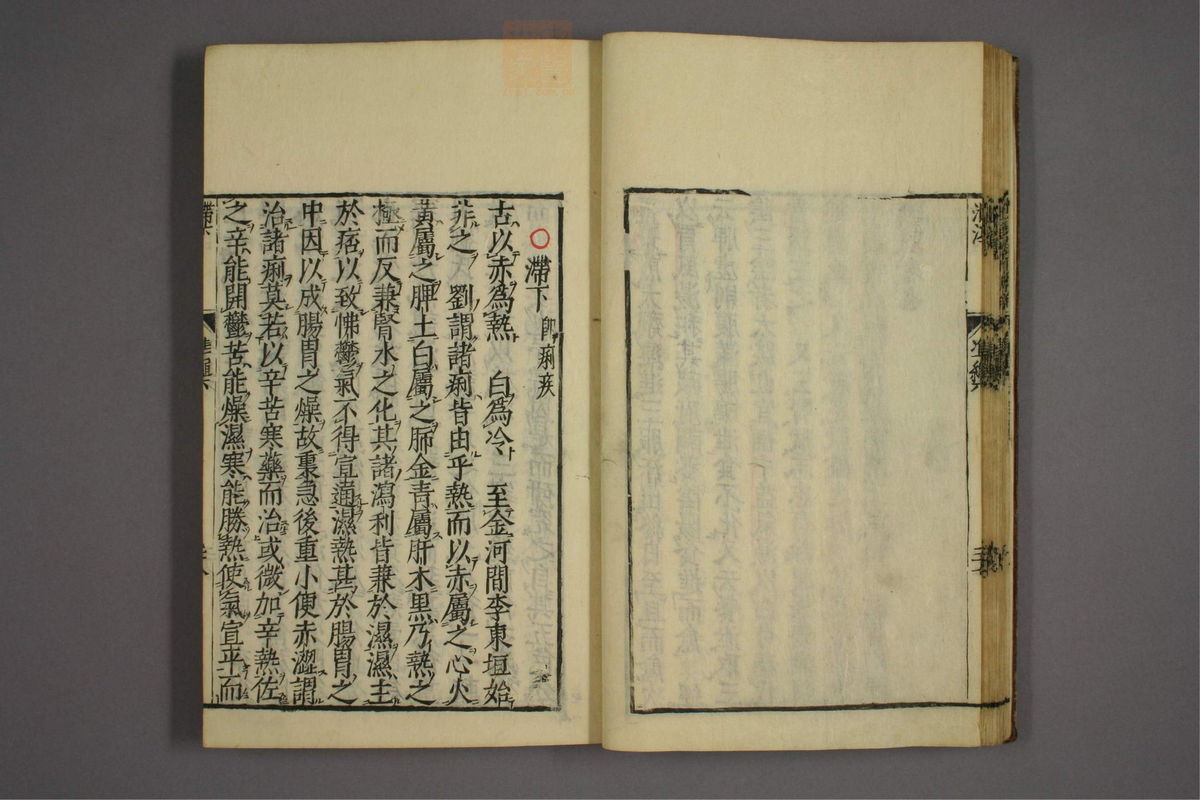 滯下 即痢疾
古以赤為熱 白為冷 至金河間李東垣始
非之 劉謂諸痢皆由乎熱而以赤屬之心火
黃屬之脾土白屬之肺金青屬肝木黑乃熱之
極而反兼腎水之化其諸瀉利皆兼於濕濕主
於痞以致怫鬱氣不得宣通濕熱甚於腸胃之
中因以成腸胃之燥故裏急後重小便赤澀謂
治諸痢莫若以辛苦寒藥而治或微加辛熱佐
之辛能開鬱苦能燥濕寒能勝熱使氣宣平而